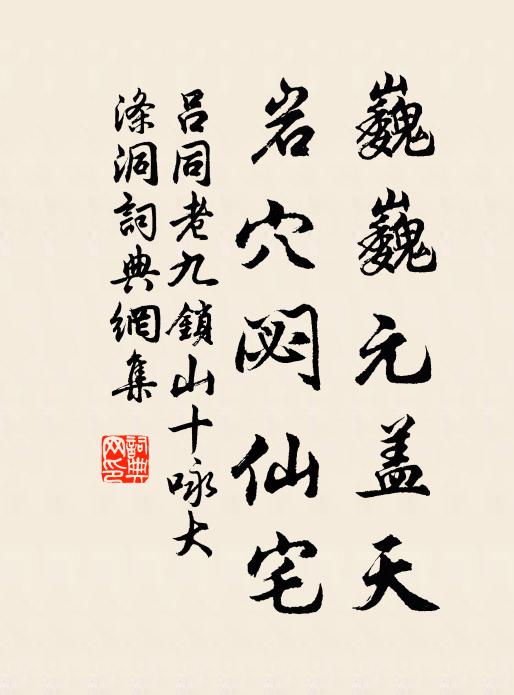 巍巍元盖天
岩穴閟仙宅
吕同老九鎖山十咏大
滌洞詞典網集
詞典网印